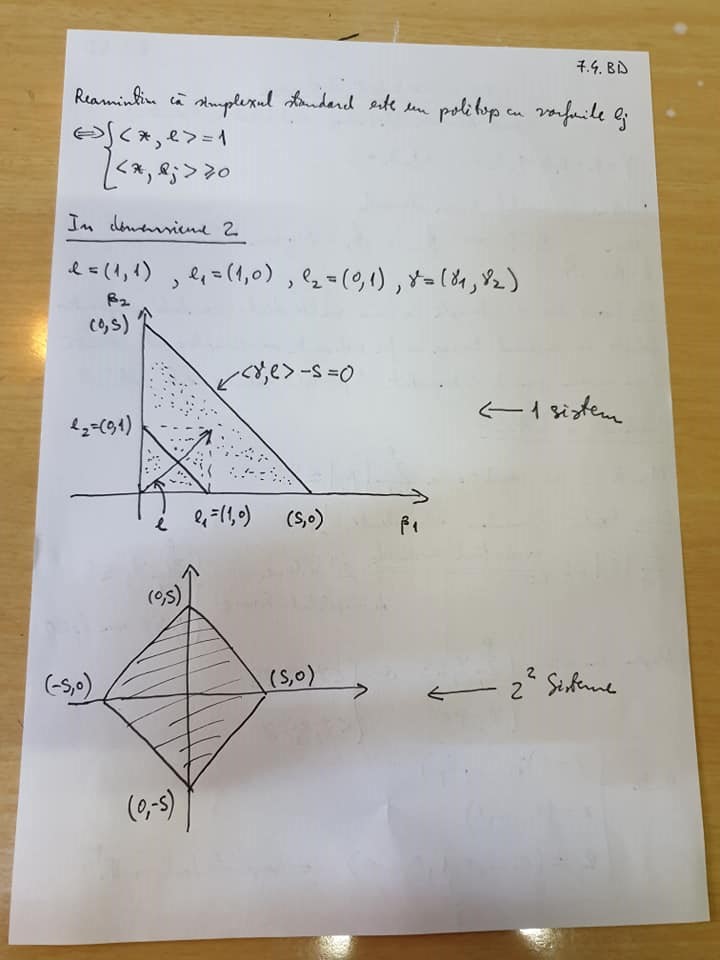 7.4. BD
Reamintim că simplexul standard este un politop cu varfurile ej
⟺ { <*, e> = 1
<*, ej> ⩾ 0
In dimensiune 2
e = (1,1) , e1 = (1,0) , e2 = (0,1) , γ = (γ1, γ2)
β2
(0,S)
<γ,e> -S = 0
e2=(0,1)
← 1 sistem
e
e1=(1,0)
(S,0)
β1
(0,S)
(-S,0)
(S,0)
← 2² Sisteme
(0,-S)